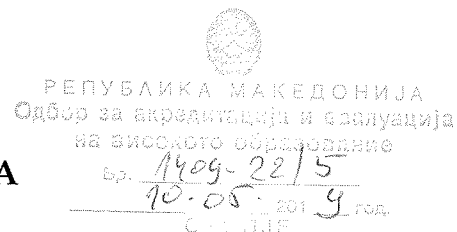 РЕПУБЛИКА МАКЕДОНИЈА
Одбор за акредитација и евалуација
на високото образование
А
Бр. 1409-22/5
10.05. 2019 год.
СКОПЈЕ